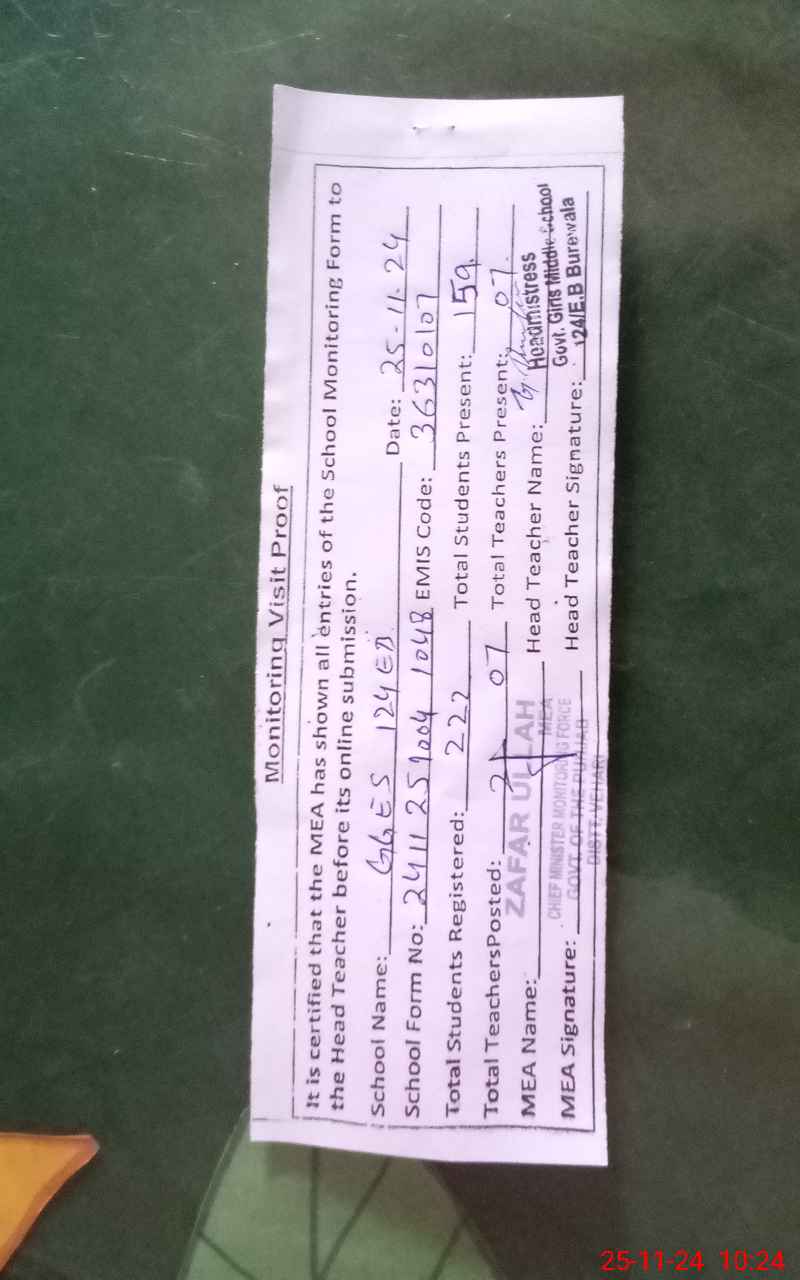 Monitoring Visit Proof
It is certified that the MEA has shown all entries of the School Monitoring Form to
the Head Teacher before its online submission.
School Name: GGES 124 EB Date: 25-11-24
School Form No: 2411251004 1048 EMIS Code: 36310107
Total Students Registered: 222 Total Students Present: 159.
Total TeachersPosted: 07 Total Teachers Present: 07.
MEA Name: ZAFAR ULLAH Head Teacher Name:
MEA
Headmistress
Govt. Girls Middle School
124/E.B Burewala
MEA Signature: Head Teacher Signature:
CHIEF MINISTER MONITORING FORCE
GOVT. OF THE PUNJAB
DISTT. VEHARI
25-11-24 10:24